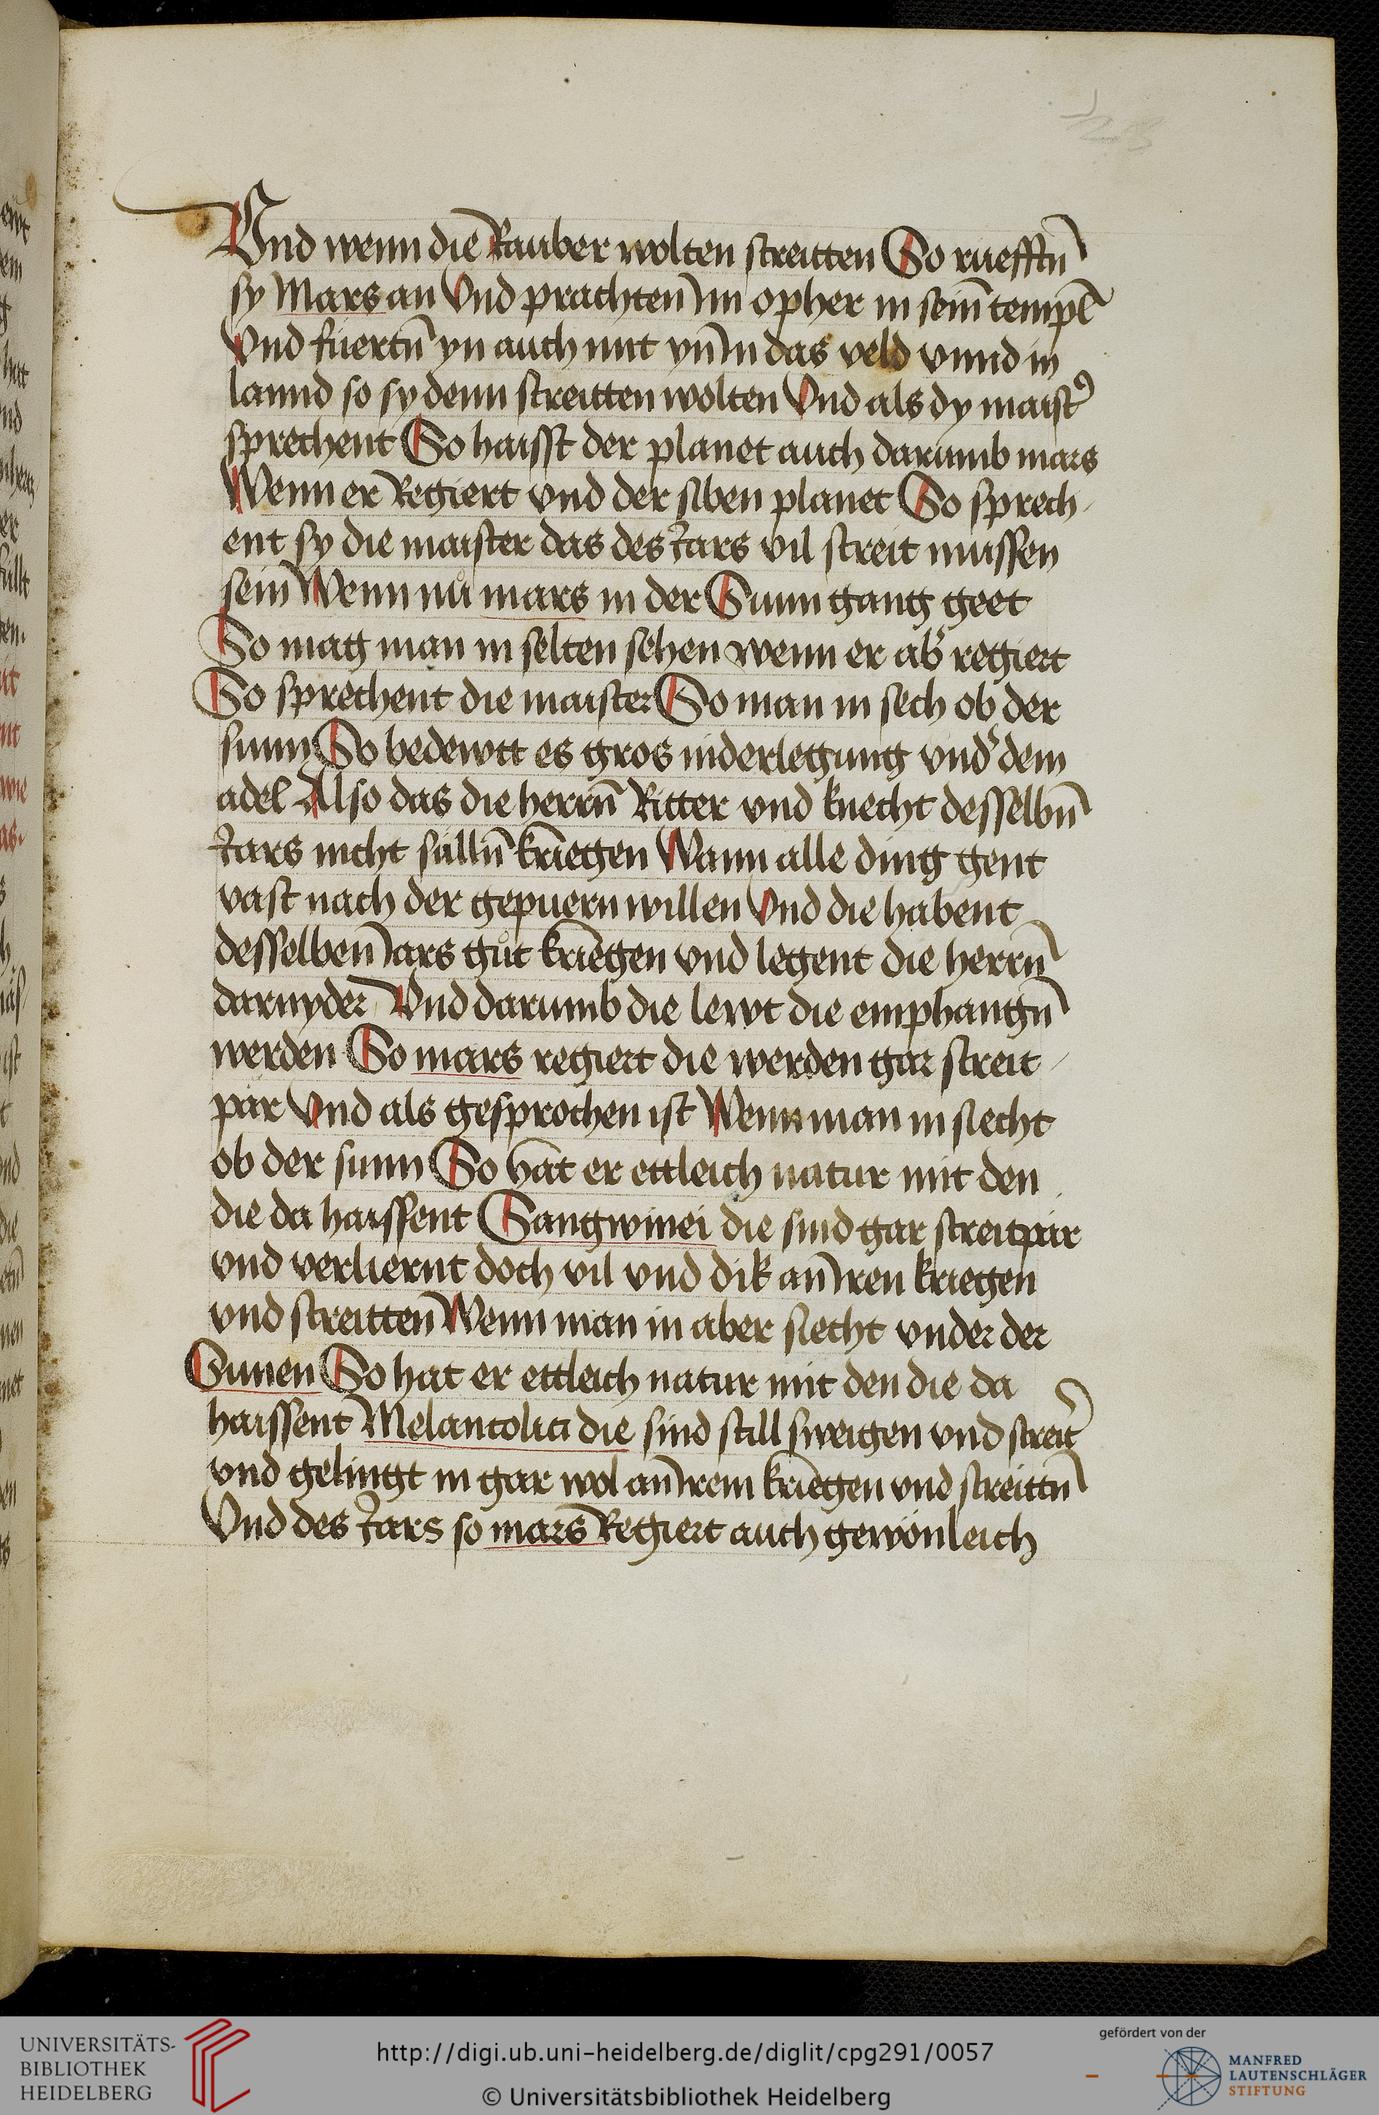 Vnd wenn die Rauber wolten streitten So ruefftn̄
sy Mars an Vnd prachten im opher in sein̄ templ̄
Vnd fuertn̄ yn auch mit yn̄ in das veld vnnd in
lannd so sy denn streitten wolten Vnd als dy maist᷑
sprechent So haisst der planet auch darumb mars
Wenn er Regiert vnd der siben planet So sprech
ent sy die maister das des Jars vil streit mussen
sein Wenn nu̇ mars in der Sunn gang geet
So mag man in selten sehen wenn er ab᷑ regiert
So sprechent die maister So man in sech ob der
sunn So bedewtt es gros niderlegung vnd᷑ dem
adel Also das die herrn̄ Ritter vnd knecht desselbn̄
Jars nicht sülln̄ kriegen Wann alle ding gent
vast nach der gepuern willen Vnd die habent
desselben Jars gůt kriegen vnd legent die herrn̄
darnyder Vnd darumb die lewt die emphangn̄
werden So mars regiert die werden gar streit
pär Vnd als gesprochen ist Wenn man in siecht
ob der sunn So hat er ettleich natur mit den
die da haissent Sangwinei die sind gar streitpär
vnd verliernt doch vil vnd dik an Iren kriegen
vnd streitten Wenn man in aber siecht vnder der
Sunen So hat er ettleich natur mit den die da
haissent Melancolici die sind still sweigen vnd streit᷑
vnd gelingt in gar wol an Irem kriegen vnd streittn̄
Vnd des Jars so mars Regiert auch gewönleich
UNIVERSITÄTS-
BIBLIOTHEK
HEIDELBERG
http://digi.ub.uni-heidelberg.de/diglit/cpg291/0057
© Universitätsbibliothek Heidelberg
gefördert von der
MANFRED
LAUTENSCHLÄGER
STIFTUNG